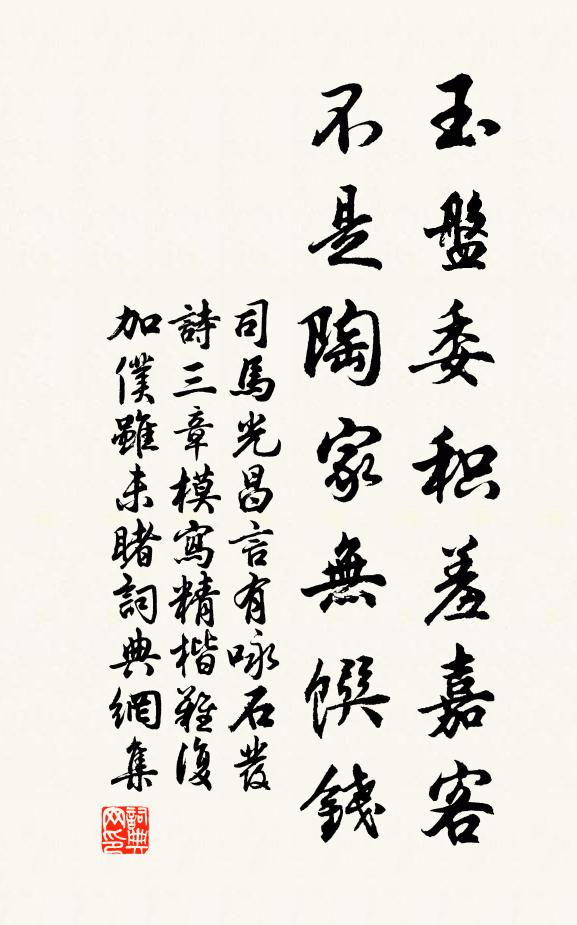 玉盤委积羞嘉客
不是陶家無饌錢
司馬光昌言有咏石發
詩三章模寫精楷難復
加僕雖未睹詞典網集
詞典
网印